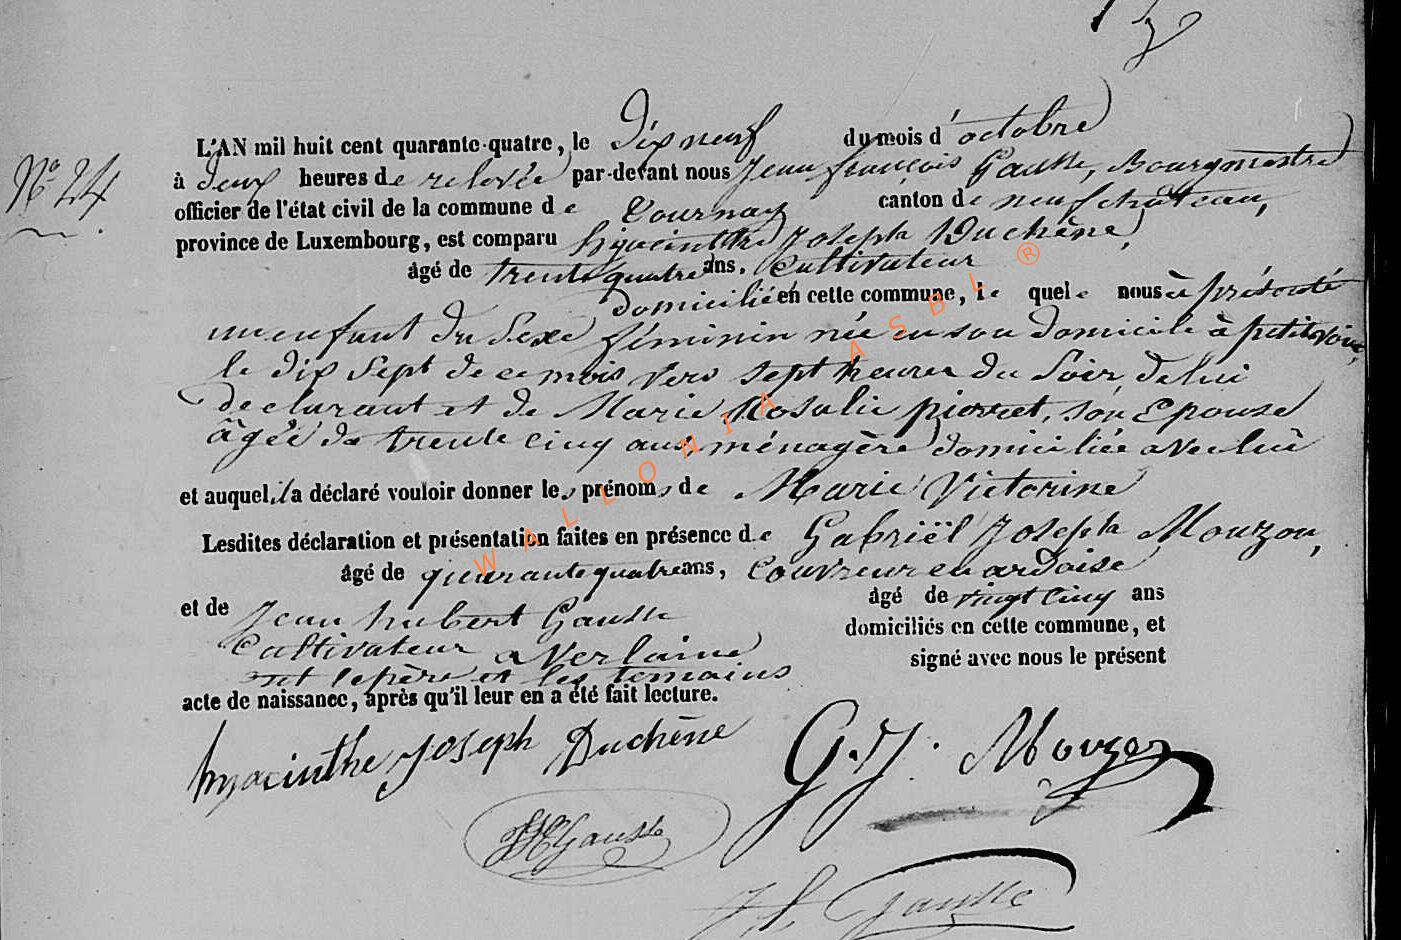 N° 24
L'AN mil huit cent quarante-quatre, le dix neuf du mois d'octobre
à deux heures de relevée par-devant nous Jean françois Gausse, Bourgmestre
officier de l'état civil de la commune de Tournay canton de neufchâteau,
province de Luxembourg, est comparu hyacinthe Joseph Duchêne,
âgé de trente quatre ans, Cultivateur
domicilié en cette commune, le quel nous à présenté
un enfant du Sexe féminin née en son domicile à petitvoir,
le dix Sept de ce mois vers sept heures du Soir, de lui
declarant et de Marie Rosalie pierret, son Epouse
âgée de trente cinq ans, ménagère domiciliée avec lui
et auquel il a déclaré vouloir donner les prénoms de Marie Victorine
Lesdites déclaration et présentation faites en présence de Gabriël Joseph Mouzon,
âgé de quarante quatre ans, Couvreur en ardoise
et de Jean hubert Gausse âgé de vingt cinq ans
Cultivateur a Verlaine domiciliés en cette commune, et
ont le père et les temoins signé avec nous le présent
acte de naissance, après qu'il leur en a été fait lecture.
hyacinthe joseph Duchène
G. J. Mouzon
JH Gausse
J f Gausse
WALLONIA ASBL ®